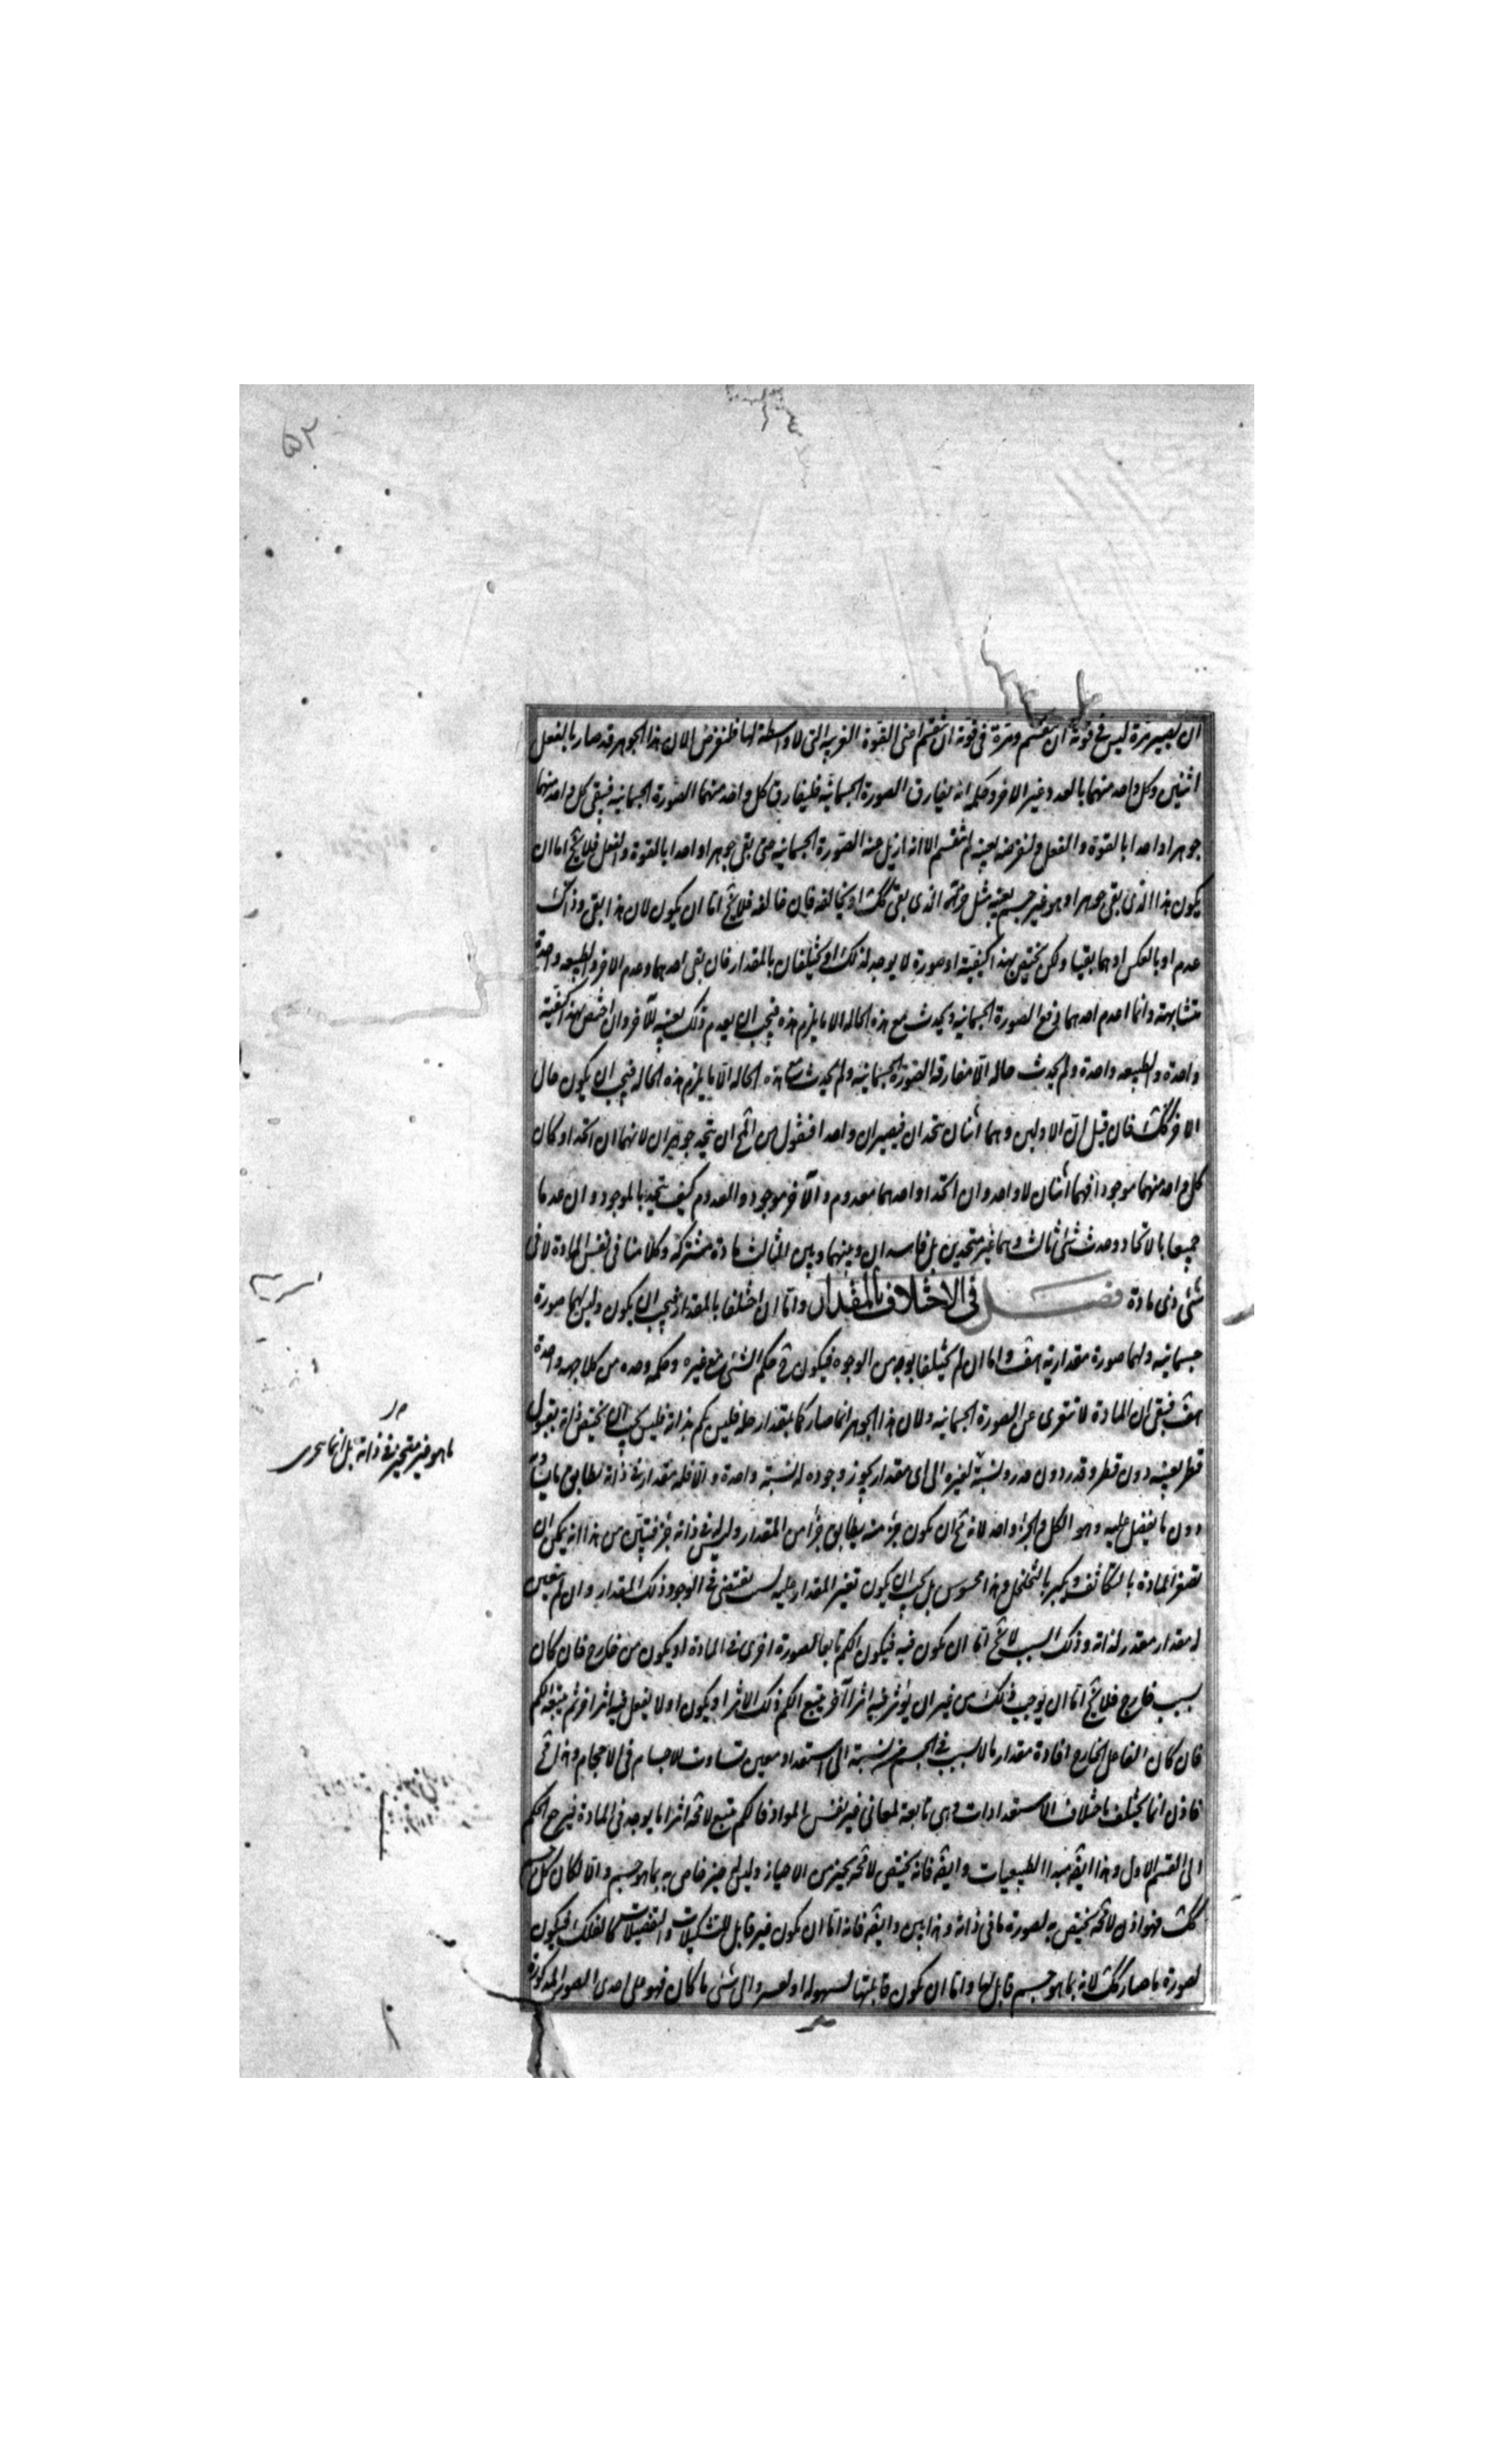 ۵۲
ان يصير مرة ليس فى قوته ان ينقسم ومرة فى قوته ان ينقسم اعنى القوة القريبه التى لا واسطة لها فلنفرض الان هذا الجوهر قد صار بالفعل
اثنين وكل واحد منهما بالعدد غير الاخر وحكمه انه يفارق الصورة الجسمانيه فليفارق كل واحد منهما الصورة الجسمانيه فيبقى كل واحد منهما
جوهرا واحدا بالقوة والفعل ولنفرضه بعينه لم ينقسم الا انه ازيل عنه الصورة الجسمانيه حتى بقى جوهرا واحدا بالقوة والفعل فلا يخ اما ان
يكون هذا الذى بقى جوهرا وهو غير جسم بعينه مثل جزئه الذى بقى كك او يخالفه فان خالفه فلا يخ اما ان يكون لان هذا بقى وذاك
عدم او بالعكس او هما بقيا ولكن يختص بهذا كيفية او صورة لا يوجد لذلك او يختلفان بالمقدار فان بقى احدهما وعدم الاخر والطبيعه واحدة
متشابهة وانما اعدم احدهما رفع الصورة الجسمانيه ولم يحدث مع هذه الحاله الا ما يلزم هذه فيجب ان يعدم ذلك بعينه للآخر وان اختص بهذا كيفية
واحدة والطبيعه واحدة ولم يحدث حاله الا مفارقة الصورة الجسمانيه ولم يحدث مع هذه الحاله الا ما يلزم هذه الحاله فيجب ان يكون حال
الاخر كك فان قيل ان الاولين وهما اثنان يتحدان فيصيران واحدا فنقول من المح ان يتحد جوهران لانهما ان اتحدا وكان
كل واحد منهما موجودا فهما اثنان لا واحد وان اتحدا واحدهما معدوم والآخر موجود والمعدوم كيف يتحد بالموجود وان عدما
جميعا بالاتحاد وحدث شئ ثالث وهما غير متحدين بل فاسدان وبينهما وبين الثالث مادة مشتركه وكلامنا فى نفس المادة لا فى
شئ ذى مادة فصل فى الاختلاف بالمقدار واما ان اختلفا بالمقدار فيجب ان يكون وليس لهما صورة
جسمانيه ولهما صورة مقدارية هف واما ان لم يختلفا بوجه من الوجوه فيكون ح حكم الشئ مع غيره وحكمه وحده من كل جهه واحدة
هف فبقى ان المادة لا تتعرى عن الصورة الجسمانيه ولان هذا الجوهر انما صار كما بمقدار حله فليس بكم بذاته فليس يجب ان يختص ذاته بقبول
قطر بعينه دون قطر وقدر دون قدر ونسبة لغيره الى اى مقدار يجوز وجوده له نسبة واحدة والا فله مقدار فى ذاته يطابق ما يساويه
دون ما يفضل عليه وهو الكل والجزء واحد لانه مح ان يكون جزء منه يطابق جزأ من المقدار وليس فى ذاته جزء فتبين من هذا انه يمكن ان
تصغر المادة بالتكاثف ويكبر بالتخلخل وهذا محسوس بل يجب ان يكون تعين المقدار عليه لسبب يقتضى فى الوجود ذلك المقدار وان لم يتعين
له مقدار مقدر لذاته وذلك السبب لا يخ اما ان يكون فيه فيكون الكم تابعا لصورة اخرى فى المادة او يكون من خارج فان كان
بسبب خارج فلا يخ اما ان يوجب ذلك من غير ان يؤثر فيه اثرا آخر يتبع الكم ذلك الاثر او يكون اولا يفعل فيه اثرا آخر ثم يتبعه الكم
فان كان الفاعل الخارج افادة مقدار ما لا بسبب فى الجسم ونسبة الى استعداد معين تساوت الاجسام فى الاحجام وهذا مح
فاذن انما يختلف باختلاف الاستعدادات وهى تابعة لمعانى غير نفس المواد فالكم يتبع لا محة اثرا ما يوجد فى المادة فيرجع الحكم
الى القسم الاول وهذا ايضه مبدا الطبيعيات وايضه فانه يختص لا محة بحيز من الاحياز وليس له حيز خاص به بما هو جسم والا لكان كل جسم
كك فهو اذن لا محة يختص به لصورة ما فى ذاته وهذا بين وايضه فانه اما ان يكون غير قابل للتشكيلات والتفصيلات كالفلك فيكون
لصورة ما صار كك لانه بما هو جسم قابل لها واما ان يكون قابلتها بسهولة او بعسر واى شئ ما كان فهو على احدى الصور المذكورة
ما هو غير متحيز فى ذاته بل انما